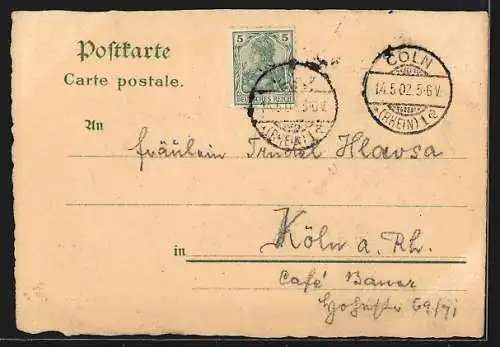 Postkarte
Carte postale.
5 5
DEUTSCHES REICH
CÖLN
14.5.02.5-6V.
(RHEIN) 1
An
Fräulein Trudel Hlavsa
in Köln a. Rh.
Café Bauer
Hohestr 69/71